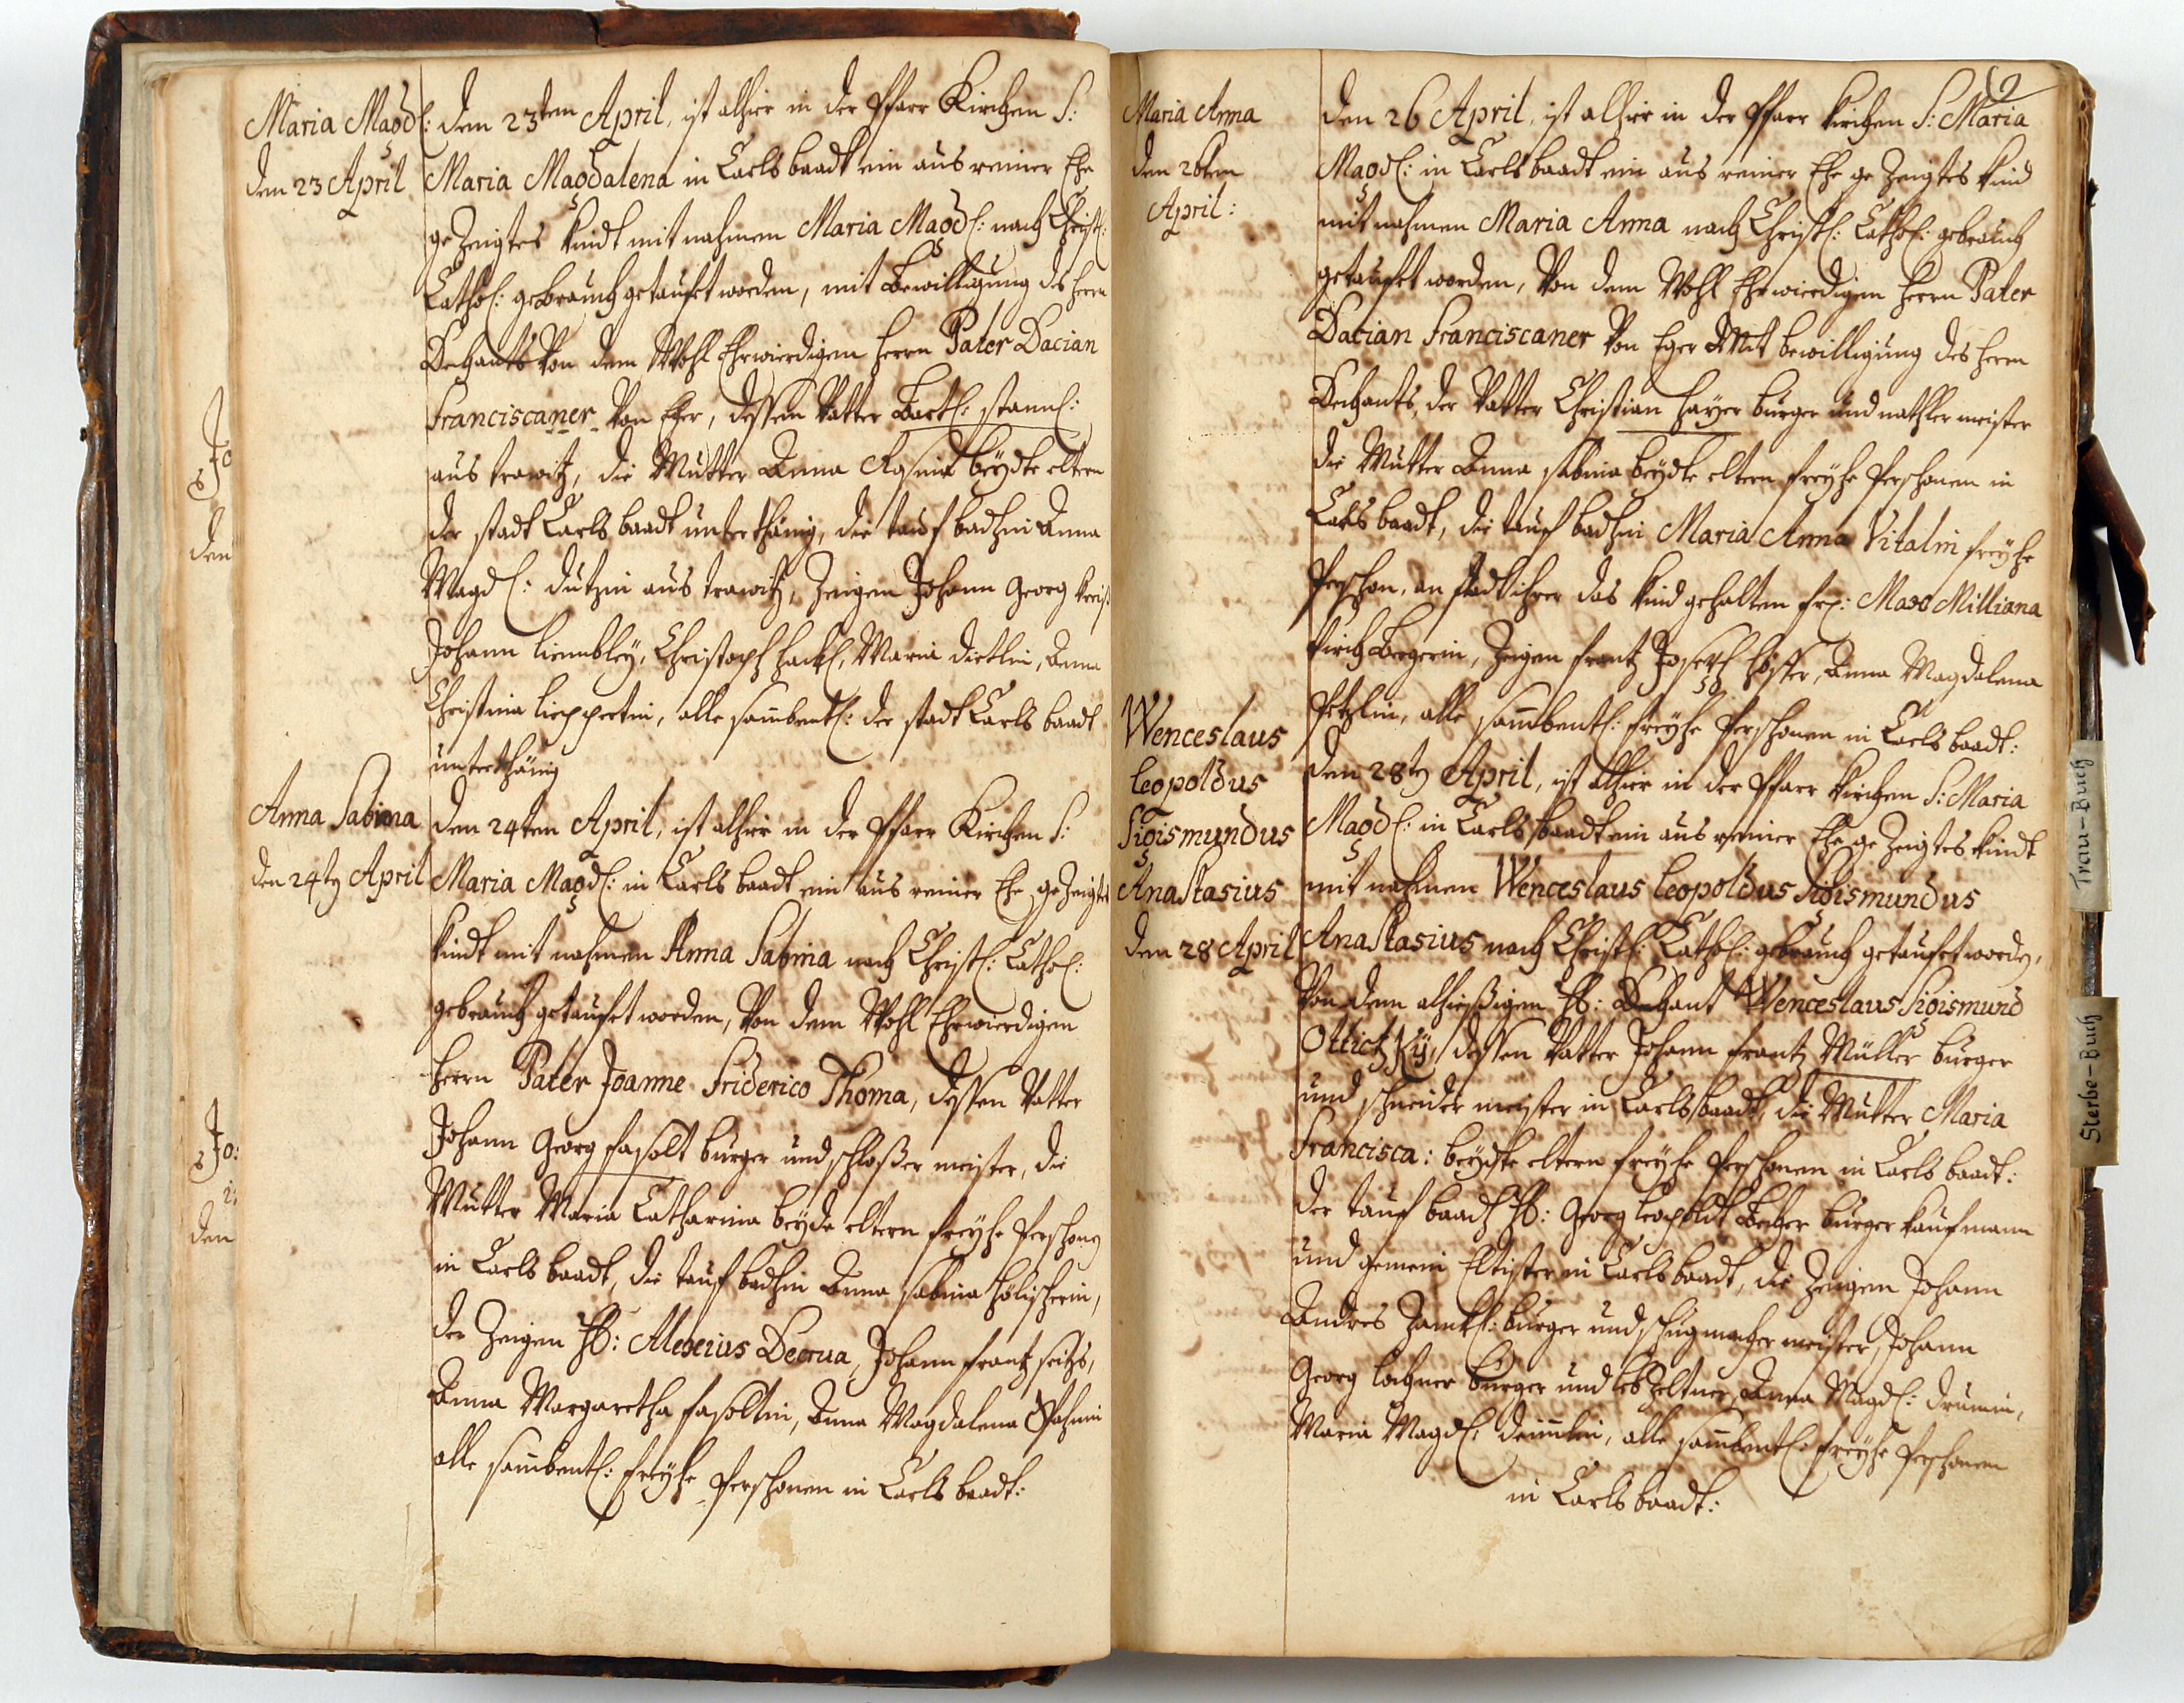 Maria Magdl:
den 23 April
den 23tem April, ist alhier in der Pfarr Kirchen S:
Maria Magdalena in Carlsbaadt ein aus reiner Ehe
ge Zeigtes Kindt mit nahmen Maria Magdl: nach Christl:
Cathol: gebrauch getaufet worden, mit Bewilligung des Herrn
Dechants Von dem Wohl Ehrwierdigen Herrn Pater Dacian
Franciscaner Von Eger, dessen Vatter Bartl:
aus trawitz, die Mutter Anna Rosina beydte eltern
der stadt Carlsbaadt unterthänig, die tauf badhin Anna
Magdl: aus trawitz, Zeigen Johann Georg
Johann Christoph Maria Anna
Christina alle sambentl: der stadt Carlsbaadt
unterthänig
Anna Sabina
den 24tn April
den 24tem April, ist alhier in der Pfarr Kirchen S:
Maria Magdl: in Carlsbaadt ein aus reiner Ehe ge Zeigtes
Kindt mit nahmen Anna Sabina nach Christl: Cathol:
gebrauch getaufet worden, Von dem Wohl Ehrwierdigen
Herrn Pater Joanne Friderico Thoma, dessen Vatter
Johann Georg Fasolt burger und schloßer meister, die
Mutter Maria Catharina beyde eltern freyhe Pershonen
in Carlsbaadt, die tauf badhin Anna Sabina Hölscherin,
der Zeigen H: Alexius Decrua, Johann Frantz Seitz,
Anna Margaretha Fasoltin, Anna Magdalena
alle sambentl: freyhe Pershonen in Carlsbaadt:
Maria Anna
den 26tem
April:
den 26 April, ist alhier in der Pfarr Kirchen S: Maria
Magdl: in Carlsbaadt ein aus reiner Ehe ge Zeigtes Kind
mit nahmen Maria Anna nach Christl: Cathol: gebrauch
getaufet worden, Von dem Wohl Ehrwierdigen Herrn Pater
Dacian Franciscaner Von Eger Mit bewilligung des Herrn
Dechants, der Vatter Christian Hayer burger und nathler meister
die Mutter Anna Sabina beydte eltern freyhe Pershonen in
Carlsbaadt, die tauf badhin Maria Anna Vitalin freyhe
Pershon, an stadt ihrer das Kind gehalten Maxmilliana
Kirchbergerin, Zeigen Frantz Joseph Anna Magdalena
alle sambentl: freyhe Pershonen in Carlsbaadt:
Wenceslaus
Leopoldus
Sigismundus
Anastasius
den 28 April
den 28tn April, ist alhier in der Pfarr Kirchen S: Maria
Magdl: in Carlsbaadt ein aus reiner Ehe ge Zeigtes Kindt
mit nahmen Wenceslaus Leopoldus Sigismundus
Anastasius nach Christl: Cathol: gebrauch getaufet worden,
Von dem alhießigen H: Dechant Wenceslaus Sigismund
Ottictzky, dessen Vatter Johann Frantz Müller burger
und schneider meister in Carlsbaadt, die Mutter Maria
Francisca: beydte eltern freyhe Pershonen in Carlsbaadt:
der tauf baadh H: Georg Leopoldt Becher burger Kaufmann
und gemein Eltister in Carlsbaadt, die Zeigen Johann
Andres burger und schugmacher meister, Johann
Georg Lochner burger und lebZeltner, Anna Magdl:
Maria Magdl: alle sambentl: freyhe Pershonen
in Carlsbaadt:
Trau-Buch
Sterbe-Buch
Jo
den
Jo:
den